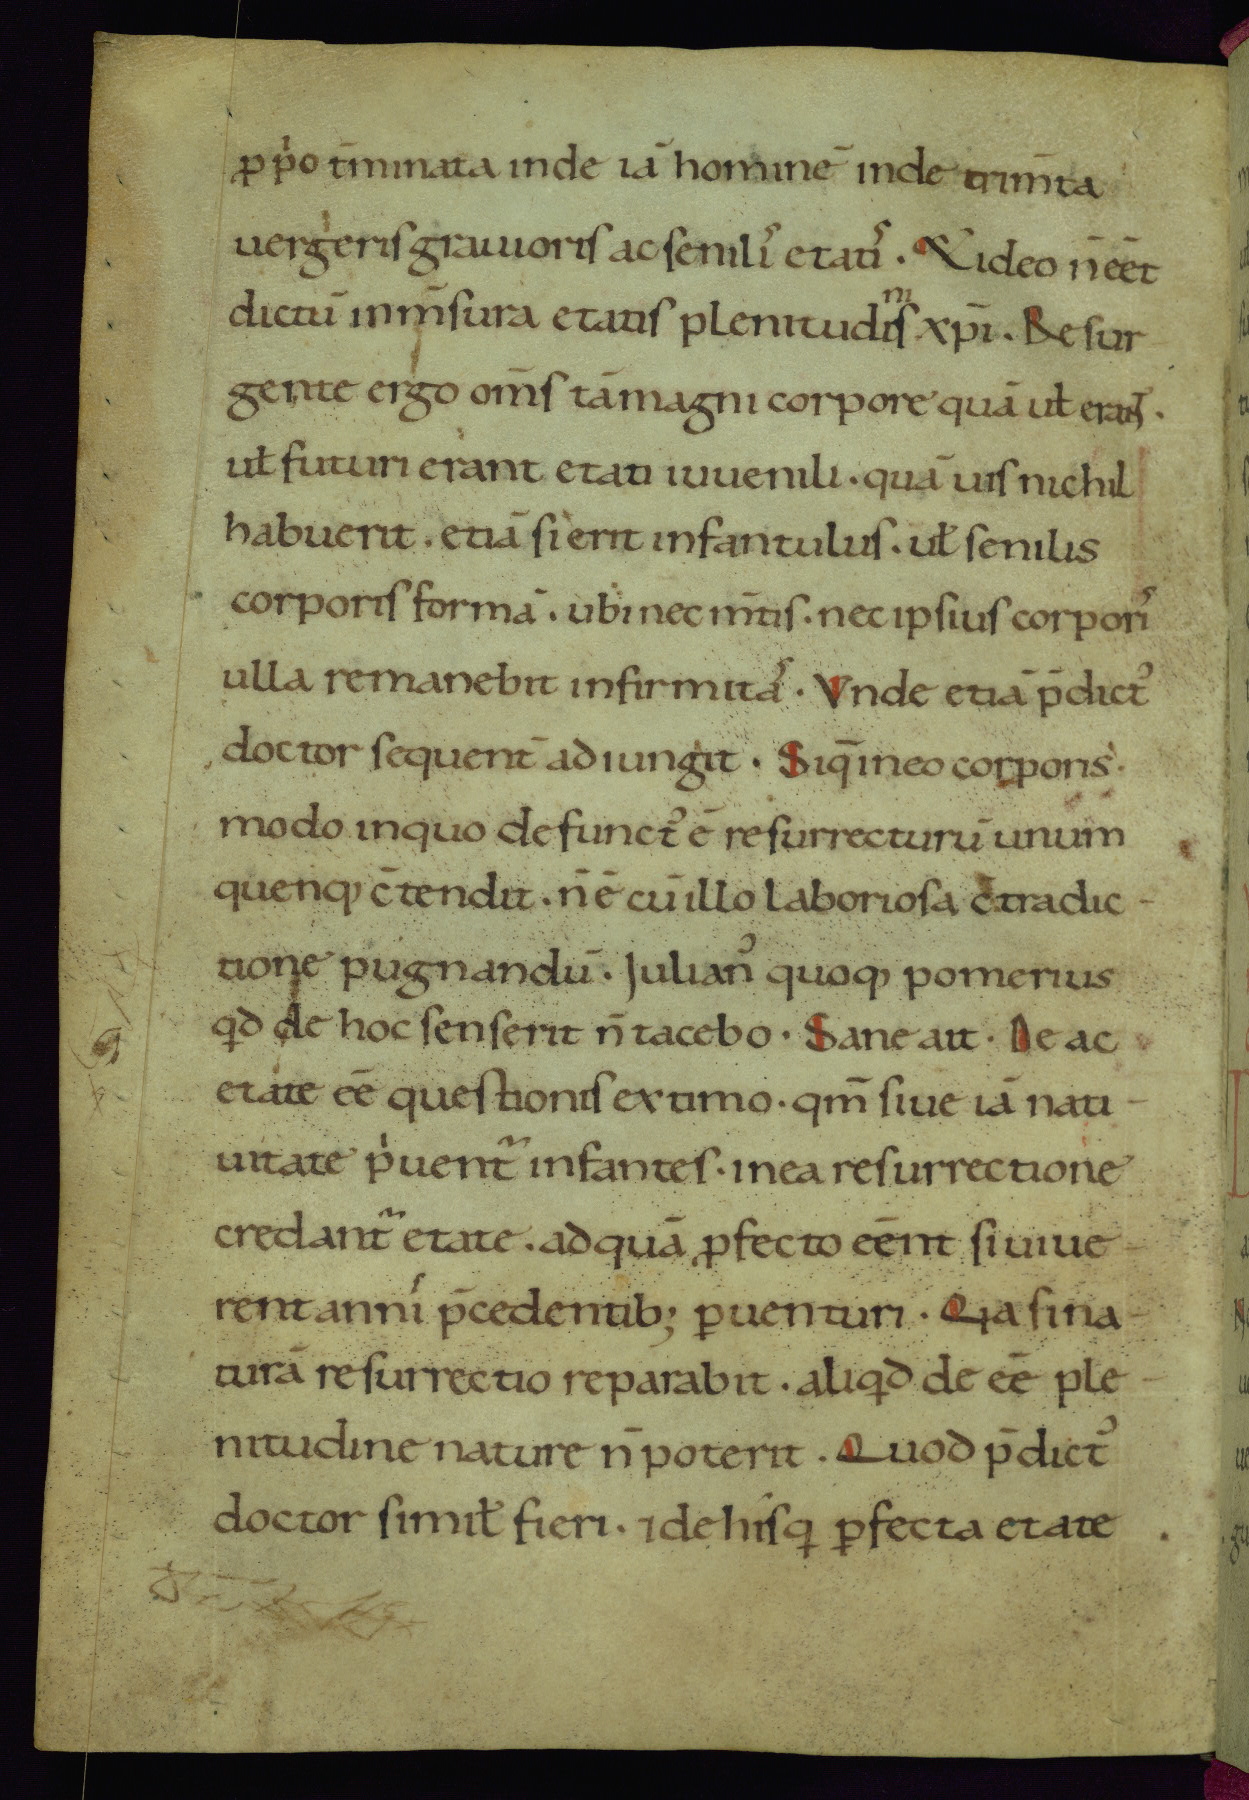 ꝓpͥo t̄minata inde iā hominē inde trim̄ta
uergeris grauioris ac senilis etatis. Video n̄ eēt
dictū in m̄sura etatis plenitudinis xp̄i. Resur
gente ergo om̄s tā magni corpore quā ut̄ erant.
ut̄ futuri erant etati iuuenili. quā uis nichil
habuerit. etiā si erit infantulus. ut̄ senilis
corporis formā. ubi nec m̄tis. nec ipsius corporis
ulla remanebit infirmitas. Vnde etiā p̄dictꝰ
doctor sequent̄ adiungit. Siq̄ in eo corporis
modo in quo defunctꝰ ē resurrecturū unum
quenqꝫ c̄tendit. n̄ ē cū illo laboriosa c̄tradic-
tione pugnandū. Julianꝰ quoqꝫ pomerius
qđ de hoc senserit n̄ tacebo. Sane ait. De ac
etate eē questionis extimo. qm̄ siue iā nati-
uitate pͥuent̃ infantes. in ea resurrectione
credant̃ etate. ad quā ꝓfecto eēnt si uiue-
rent annis p̄cedentib; ꝑuenturi. Qia si na-
turā resurrectio reparabit. aliqđ de eē ple-
nitudine nature n̄ poterit. Quod p̄dictꝰ
doctor simil̄ fieri. ⁊ de hisq ꝑfecta etate